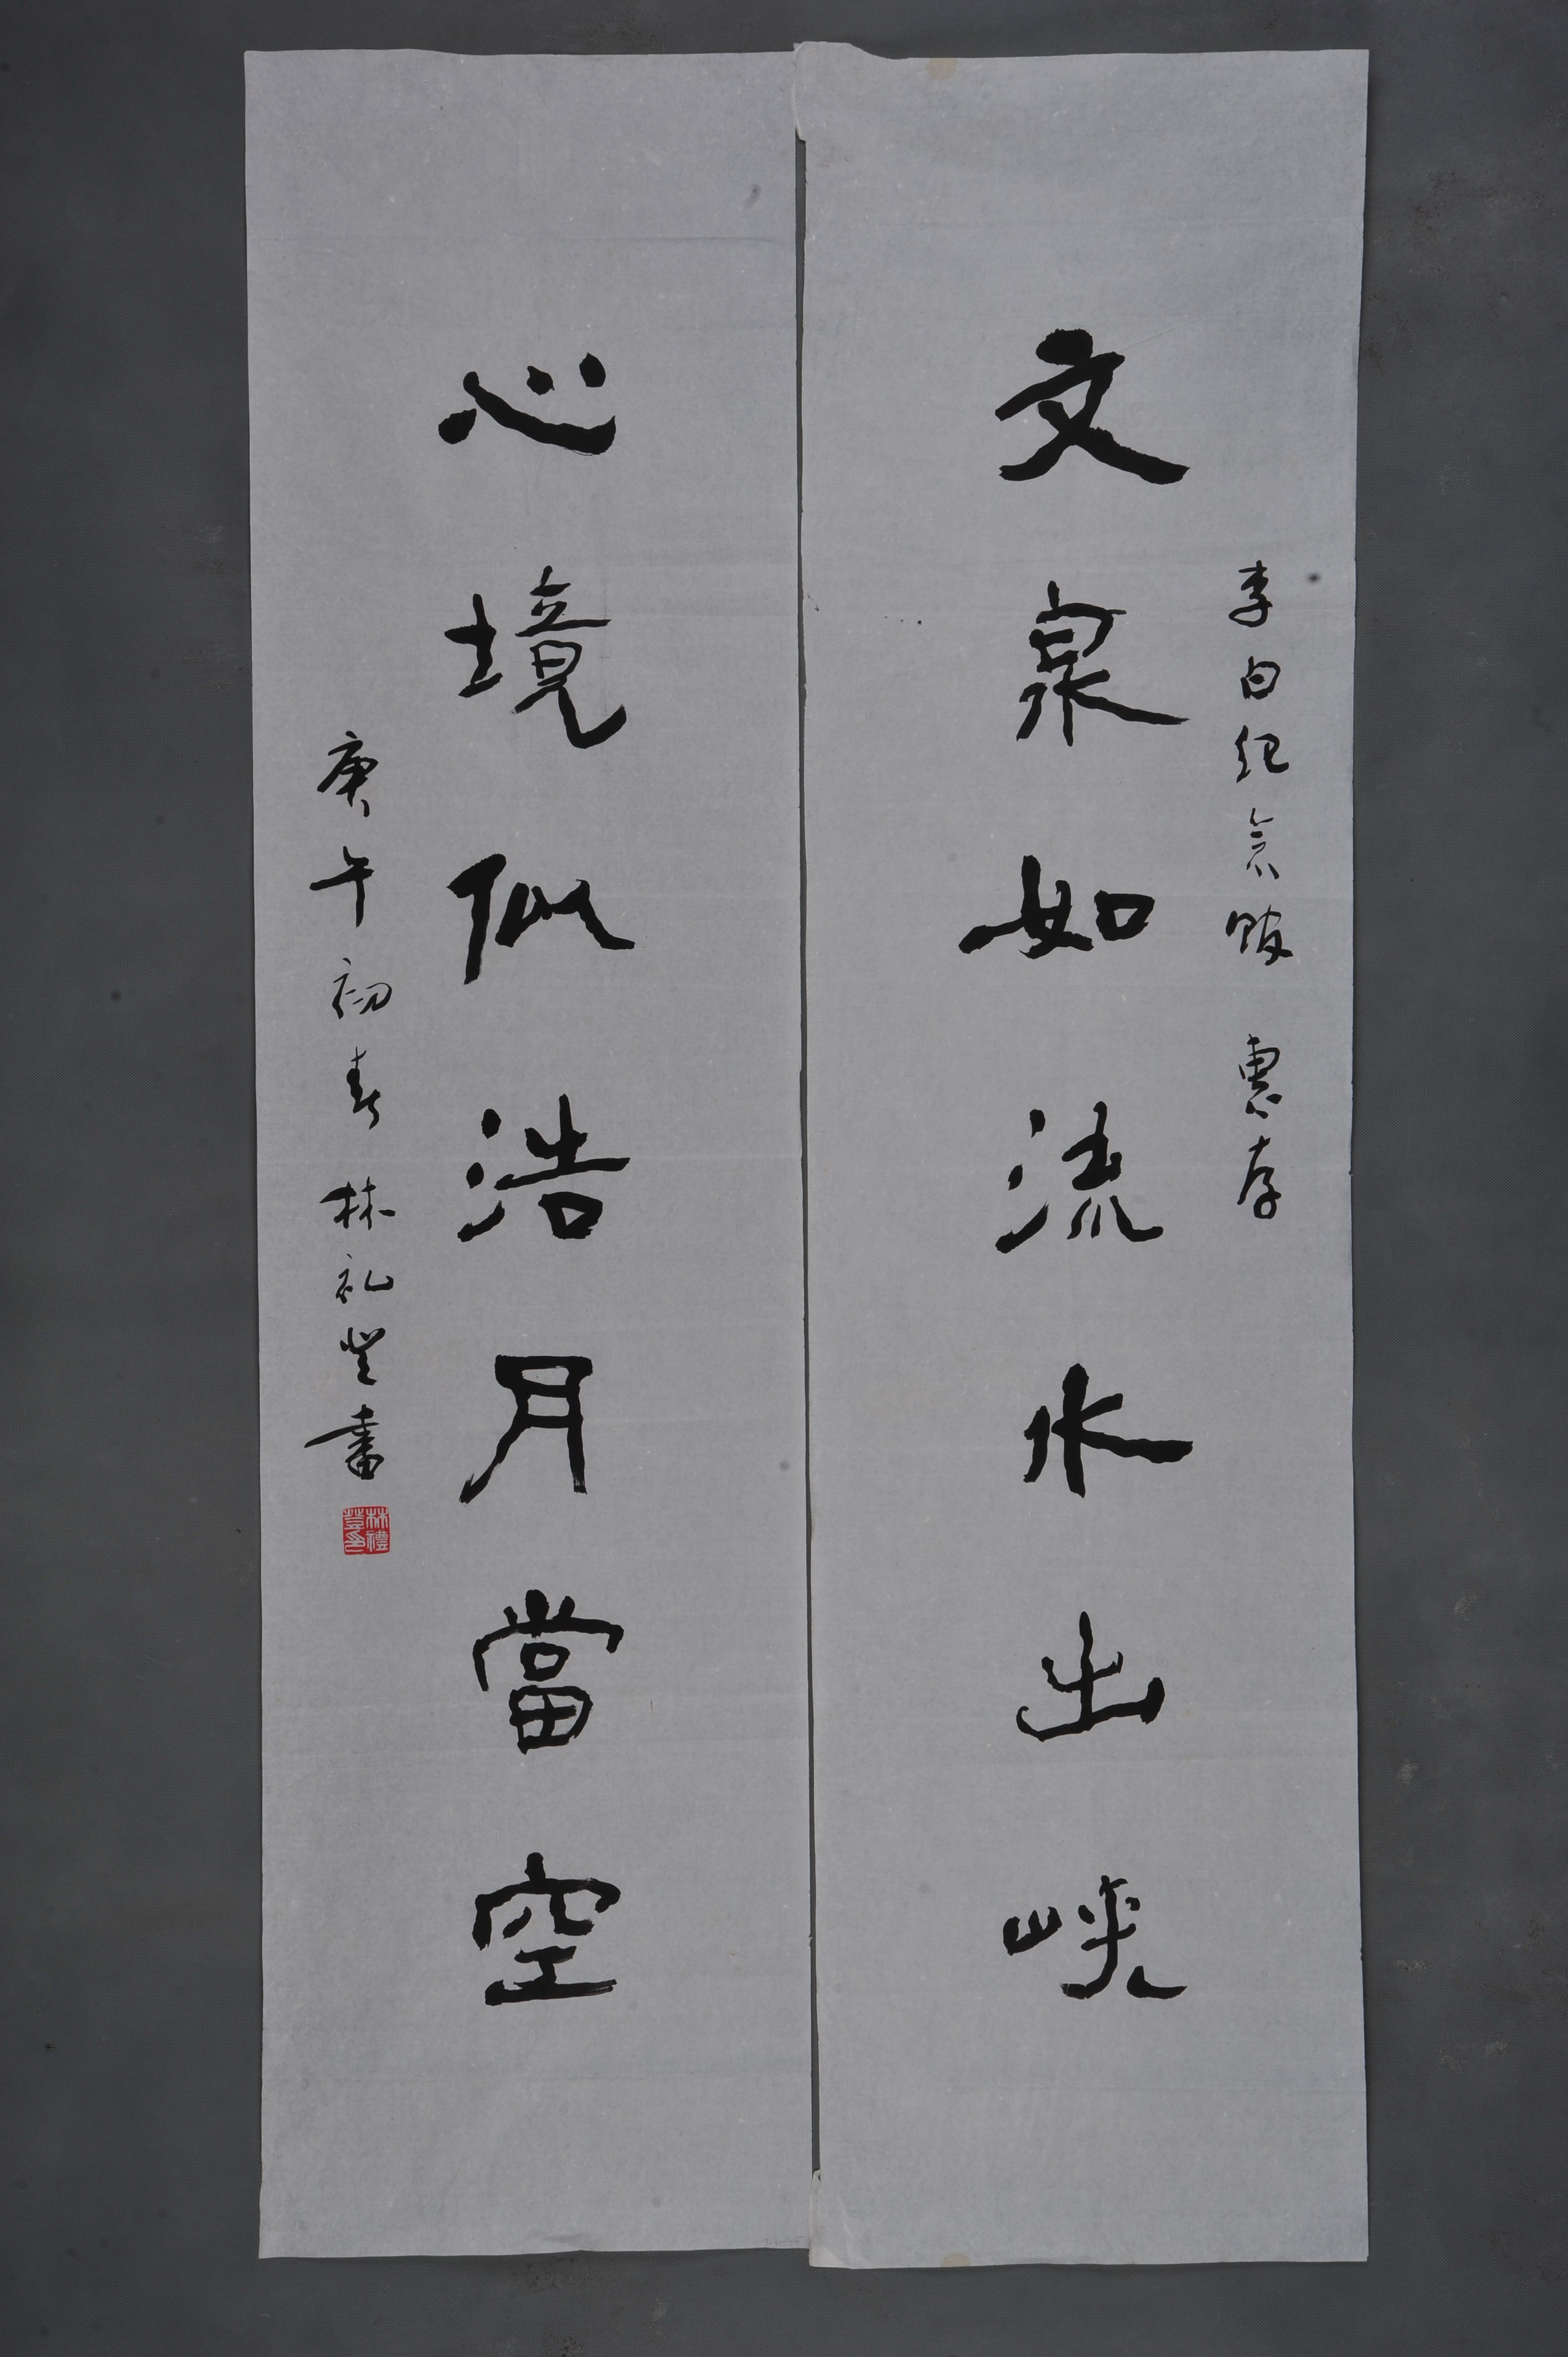 李白纪念馆 惠存
文泉如流水出峡
心境似浩月當空
庚午初春 林礼登書
林禮登印